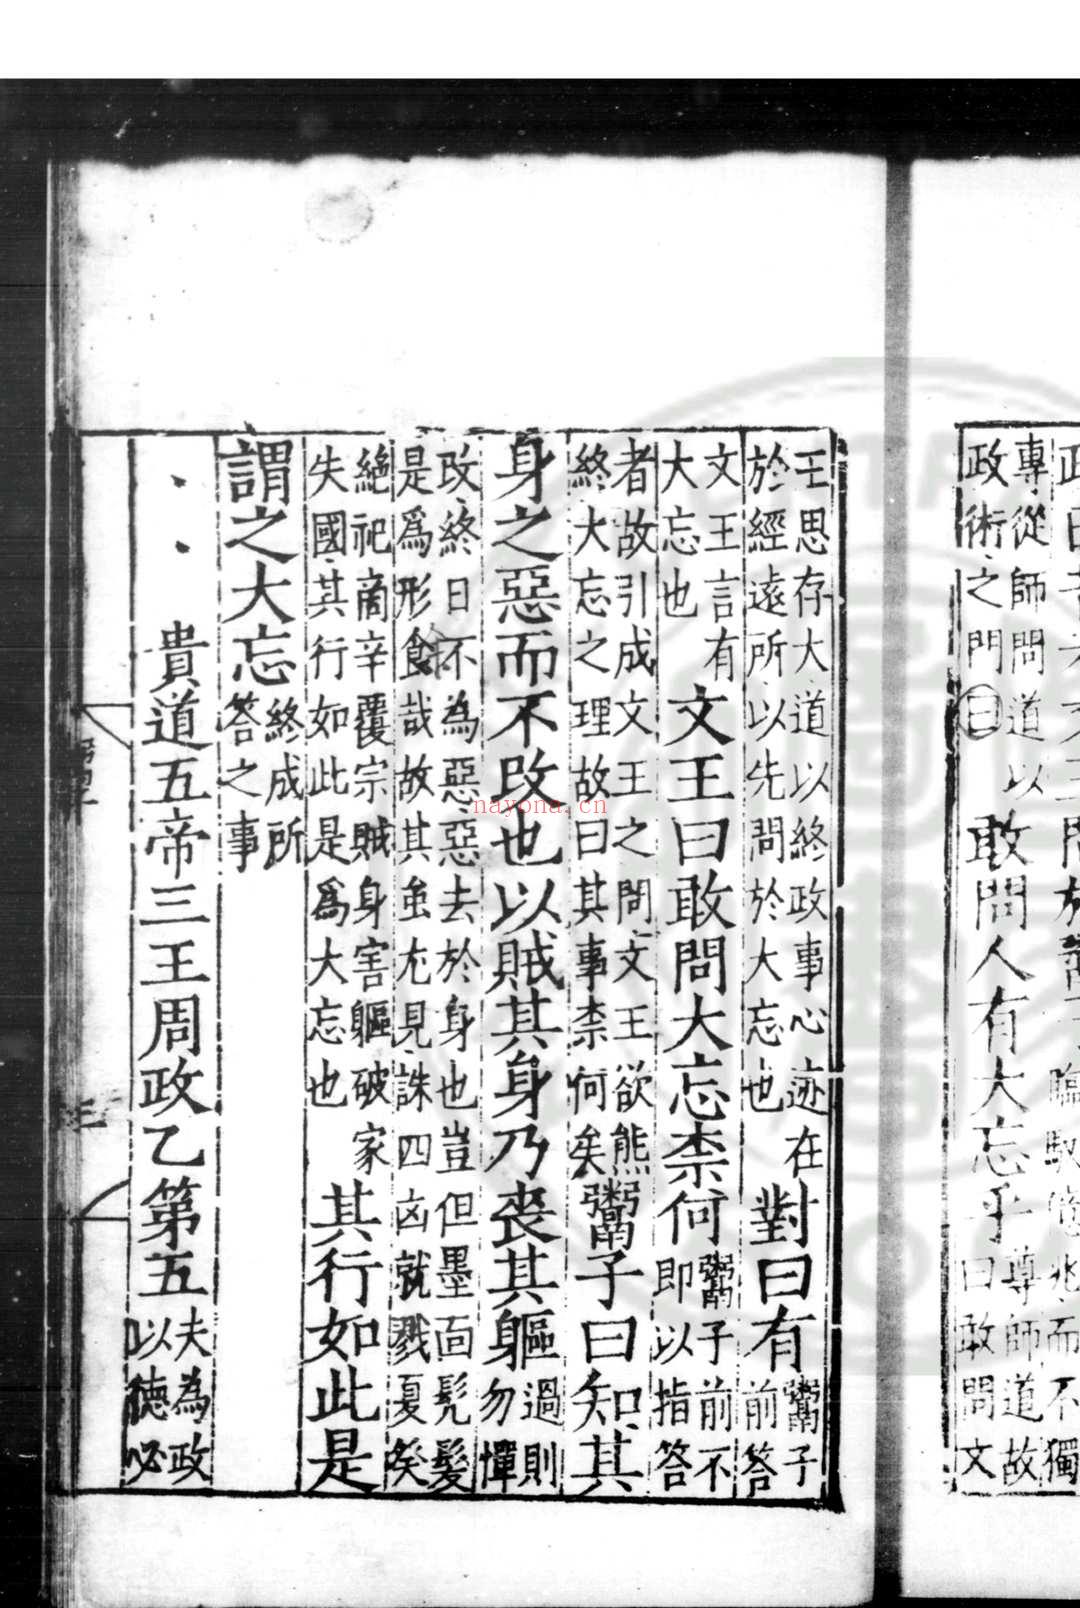 專從師問道以
政術之門曰
敢問人有大忘乎
尊師道故
曰敢問文
王思存大道以終政事心迹在
於經遠所以先問於大忘也
對曰有
鬻子
前答
文王言有
大忘也
文王曰敢問大忘柰何
鬻子前不
即以指答
者故引成文王之問文王欲熊
終大忘之理故曰其事柰何矣
鬻子曰知其
身之惡而不改也以賊其身乃喪其軀
過則
勿憚
改終日不為惡惡去於身也豈但墨面髡髮
是爲形餙哉故其蚩尤見誅四凶就戮夏癸
絕祀啇辛覆宗賊身害軀破家
失國其行如此是爲大忘也
其行如此是
謂之大忘
終成所
答之事
貴道五帝三王周政乙第五
夫為政
以德必
nayona.cn